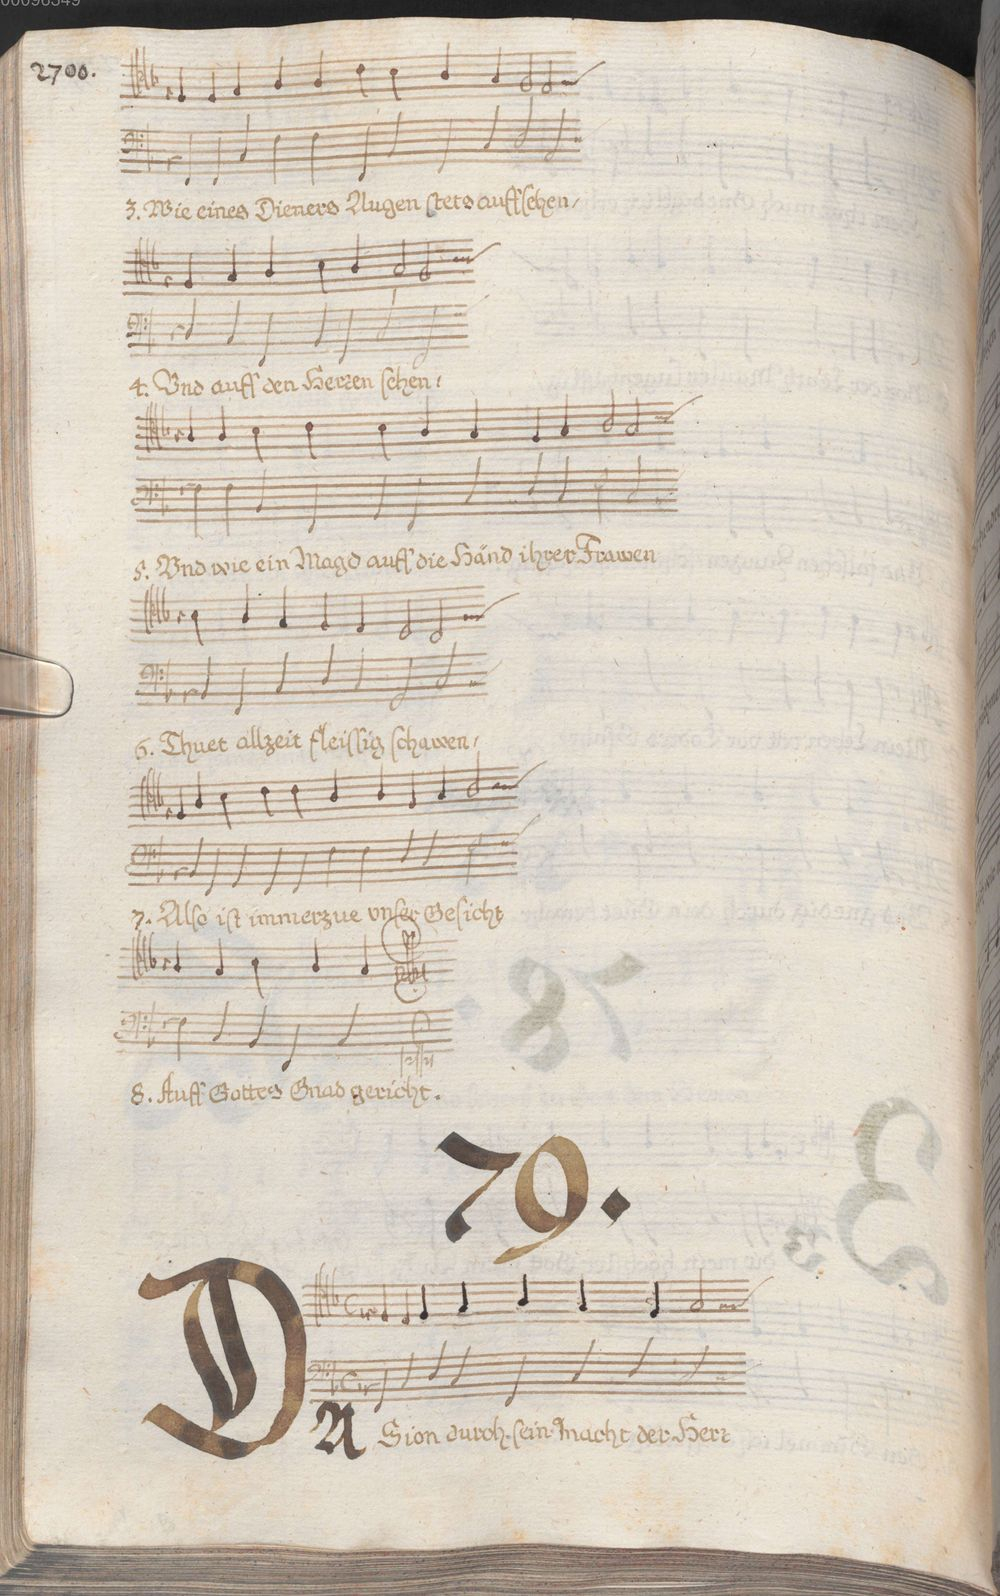 00096349
2700.
3. Wie eines Dieners Augen stets auffsehen/
4. Vnd auff den Herren sehen:
5. Vnd wie ein Magd auff die Händ ihrer Frawen
6. Thuet allzeit fleissig schawen/
7. Also ist immerzue vnser Gesicht
8. Auff Gottes Gnad gericht.
79.
DA Sion durch sein Macht der Herr